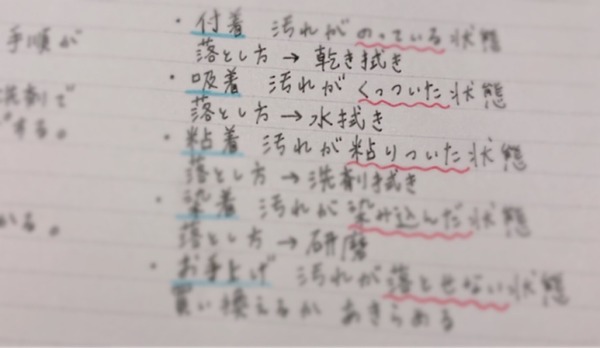 ・付着 汚れがのっている状態
落とし方→乾き拭き
・吸着 汚れがくっついた状態
落とし方→水拭き
・粘着 汚れが粘りついた状態
落とし方→洗剤拭き
・染着 汚れが染み込んだ状態
落とし方→研磨
・お手上げ 汚れが落とせない状態
買い換えるか あきらめる
手順が
洗剤で
する。
る。